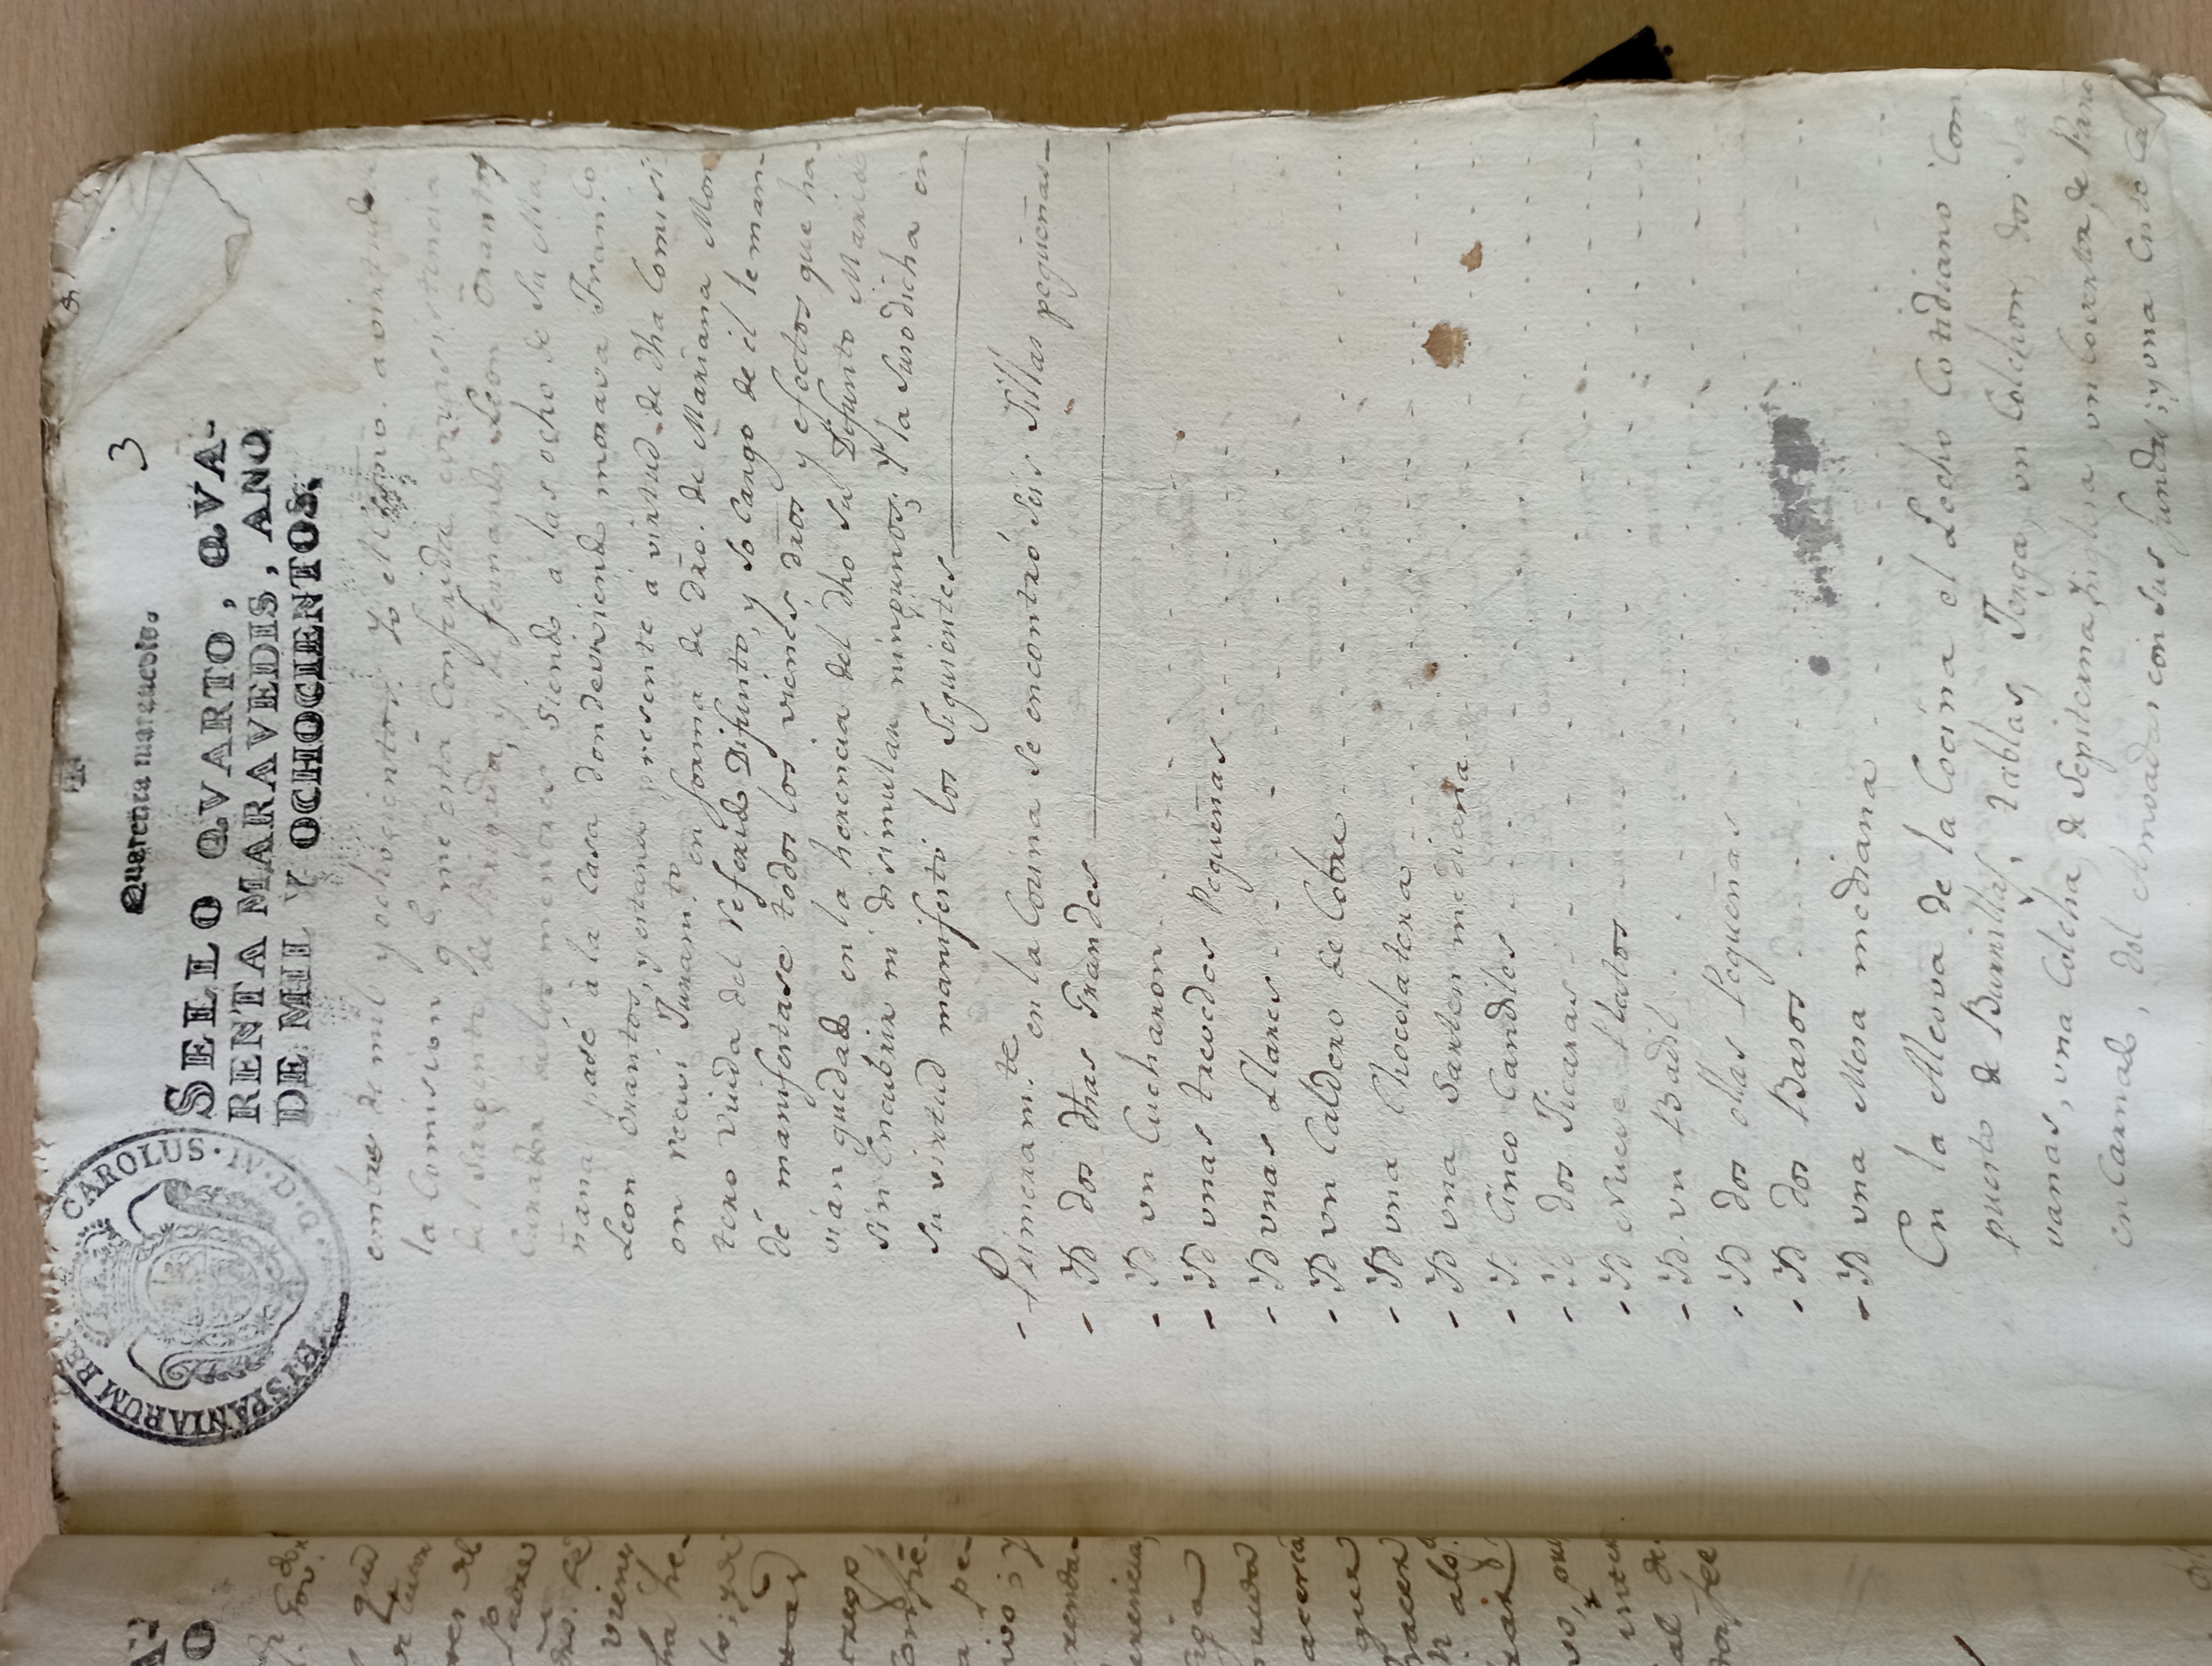 HISPANIARUM REX CAROLUS·IV·D·G·
Quarenta maravedis.
3
SELLO QVARTO, QVA-
RENTA MARAVEDIS, AÑO
DE MIL Y OCHOCIENTOS.
embre de mil y ochocientos. Yo el Essno. a virtud de
la Comision qe. me está Conferida con asistencia
del Sargento de Brigada, y de fernando Leon Orantos
Curador de los menores siendo á las ocho de su Ma-
ñana pasé à la Casa donde viviendo morava Franco.
Leon Orantos, y estando presente á virtud de dha Comisi-
on recivi Juramto. en forma de dro. de Mariana Mon
tero viuda del Referido Difunto, y so cargo de él le man-
dé manifestase todos los vienes, dros y efectos que ha-
vian quedado en la herencia del dho su Difunto Marido
sin encubrir ni disimular ningunos; Y la suso dicha en
su virtud manifestó los Siguientes
- Primeramte. en la Cocina se encontró seis Sillas pequeñas
- Yd dos dhas Grandes
- Yd un Cucharon
- Yd unas trevedes Pequeñas
- Yd unas Llares
- Yd un Caldero de Cobre
- Yd una Chocolatera
- Yd una Sarten mediana
- Yd Cinco Candiles
- Yd dos Jicaras
- Yd Nueve Platos
- Yd un Badil
- Yd dos ollas Pequeñas
- Yd dos Basos
- Yd una Mesa mediana
En la Alcova de la Cocina el Lecho Cotidiano Com
puesto de Burrillas, tablas, Jerga, un Colchon, dos Sa
vanas, una Colcha de Sepiterna Inglesa un Covertor de Paño
enCarnado, dos Almoadas con sus fundas; y una